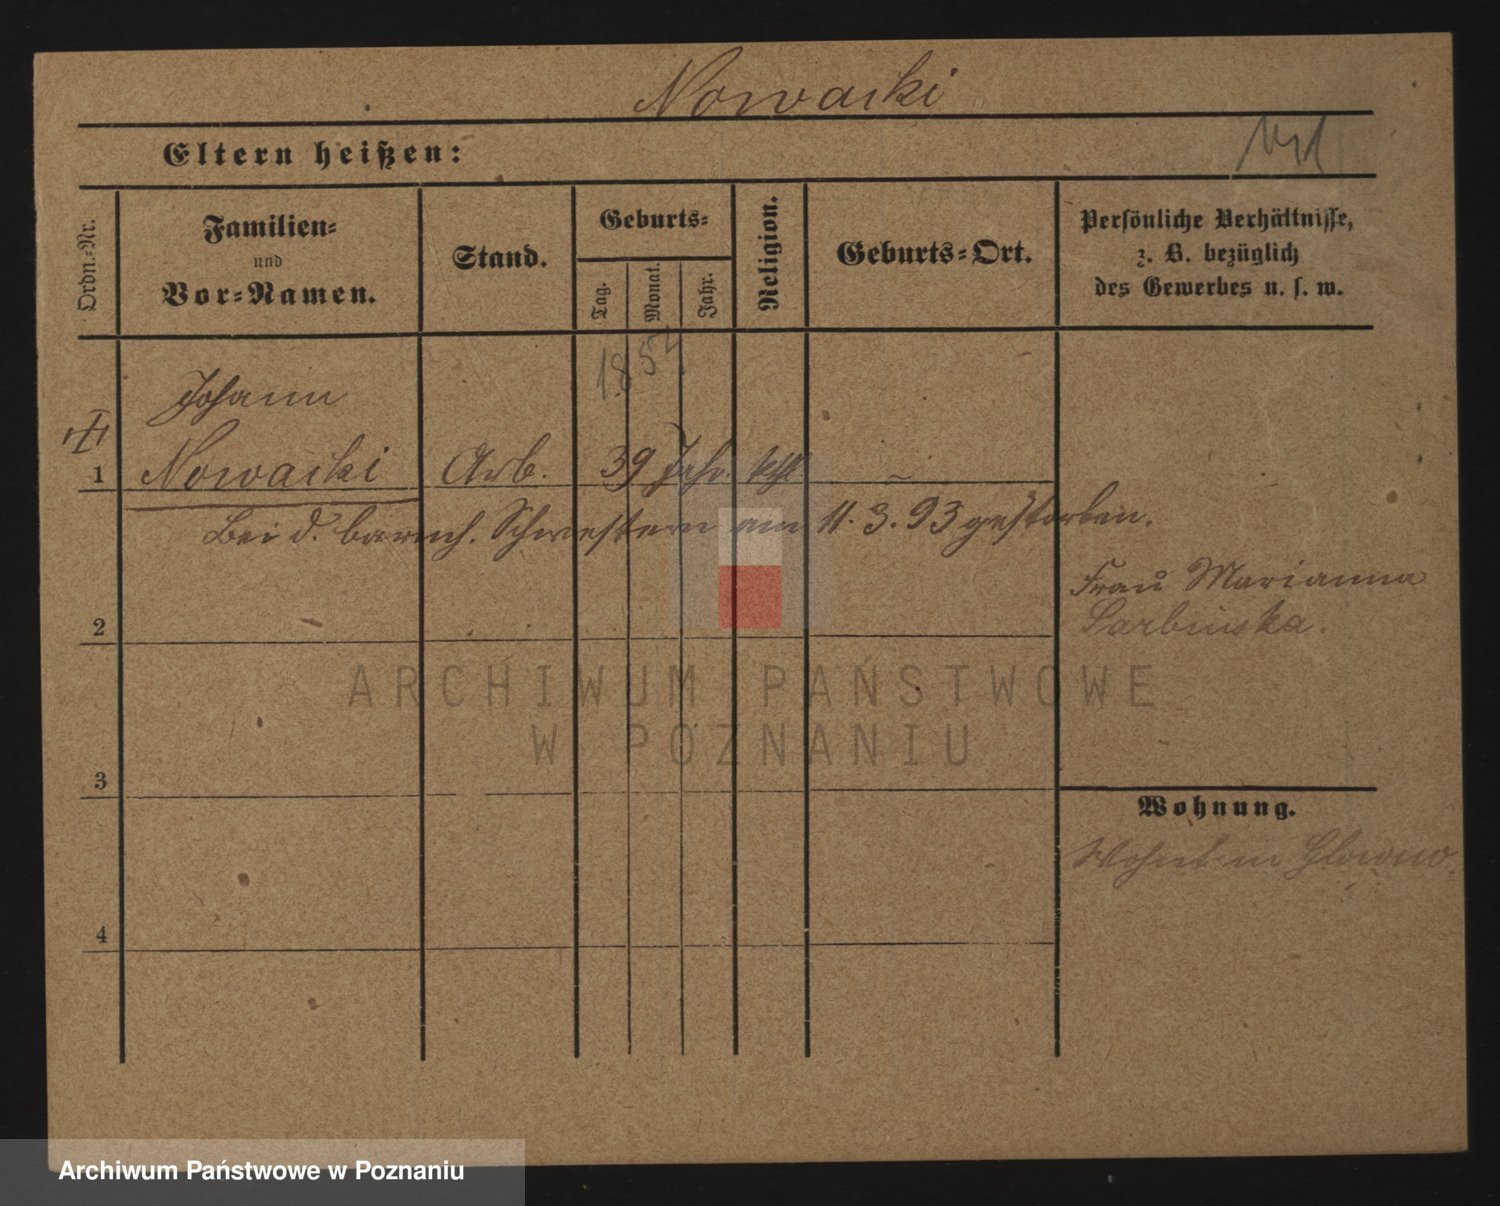 Nowacki
Eltern heißen:
Ordn.-Nr.
Familien-
und
Vor-Namen.
Stand.
Geburts-
Tag.
Monat.
Jahr.
Religion.
Geburts-Ort.
Persönliche Verhältnisse,
z. B. bezüglich
des Gewerbes u. s. w.
1854
Johann
1 Nowacki Arb. 39 Jahr. kth –
Bei d. barmh. Schwestern am 11. 3. 93 gestorben.
Frau Marianna
2
ARCHIWUM PAŃSTWOWE
W POZNANIU
3
Wohnung.
Wohnt in Glowno.
4
Archiwum Państwowe w Poznaniu